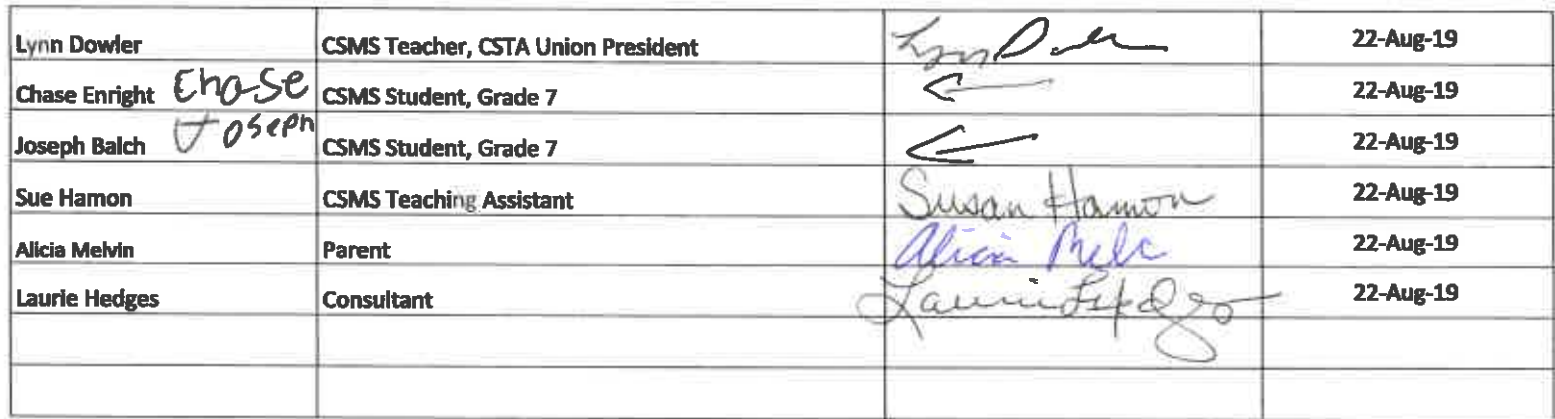 Lynn Dowler CSMS Teacher, CSTA Union President 22-Aug-19
Chase Enright Chase CSMS Student, Grade 7 22-Aug-19
Joseph Balch Joseph CSMS Student, Grade 7 22-Aug-19
Sue Hamon CSMS Teaching Assistant Susan Hamon 22-Aug-19
Alicia Melvin Parent Alicia 22-Aug-19
Laurie Hedges Consultant Laurie Hedges 22-Aug-19